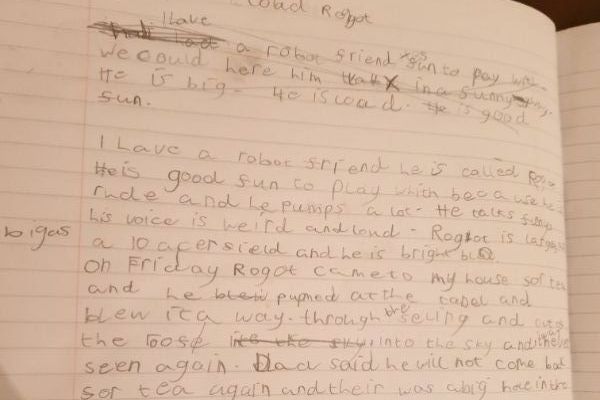 Load Rogot
I have
a robot sriend fun to pay with
We could here him talk in a sunny
He is big. He is load. He is good
sun.
I have a robot sriend he is called
He is good sun to play which because he
rude and he pumps a lot. He talks sunny
his voice is weird and loud. Rogot is
bigas
a 10 acer sield and he is bright
On Friday Rogot came to my house sor tea
and he blew pupmed at the tabel and
blew it a way. through the seling and
the roose into the sky and
seen again. Dad said he will not come bak
sor tea again and their was a big hole in the